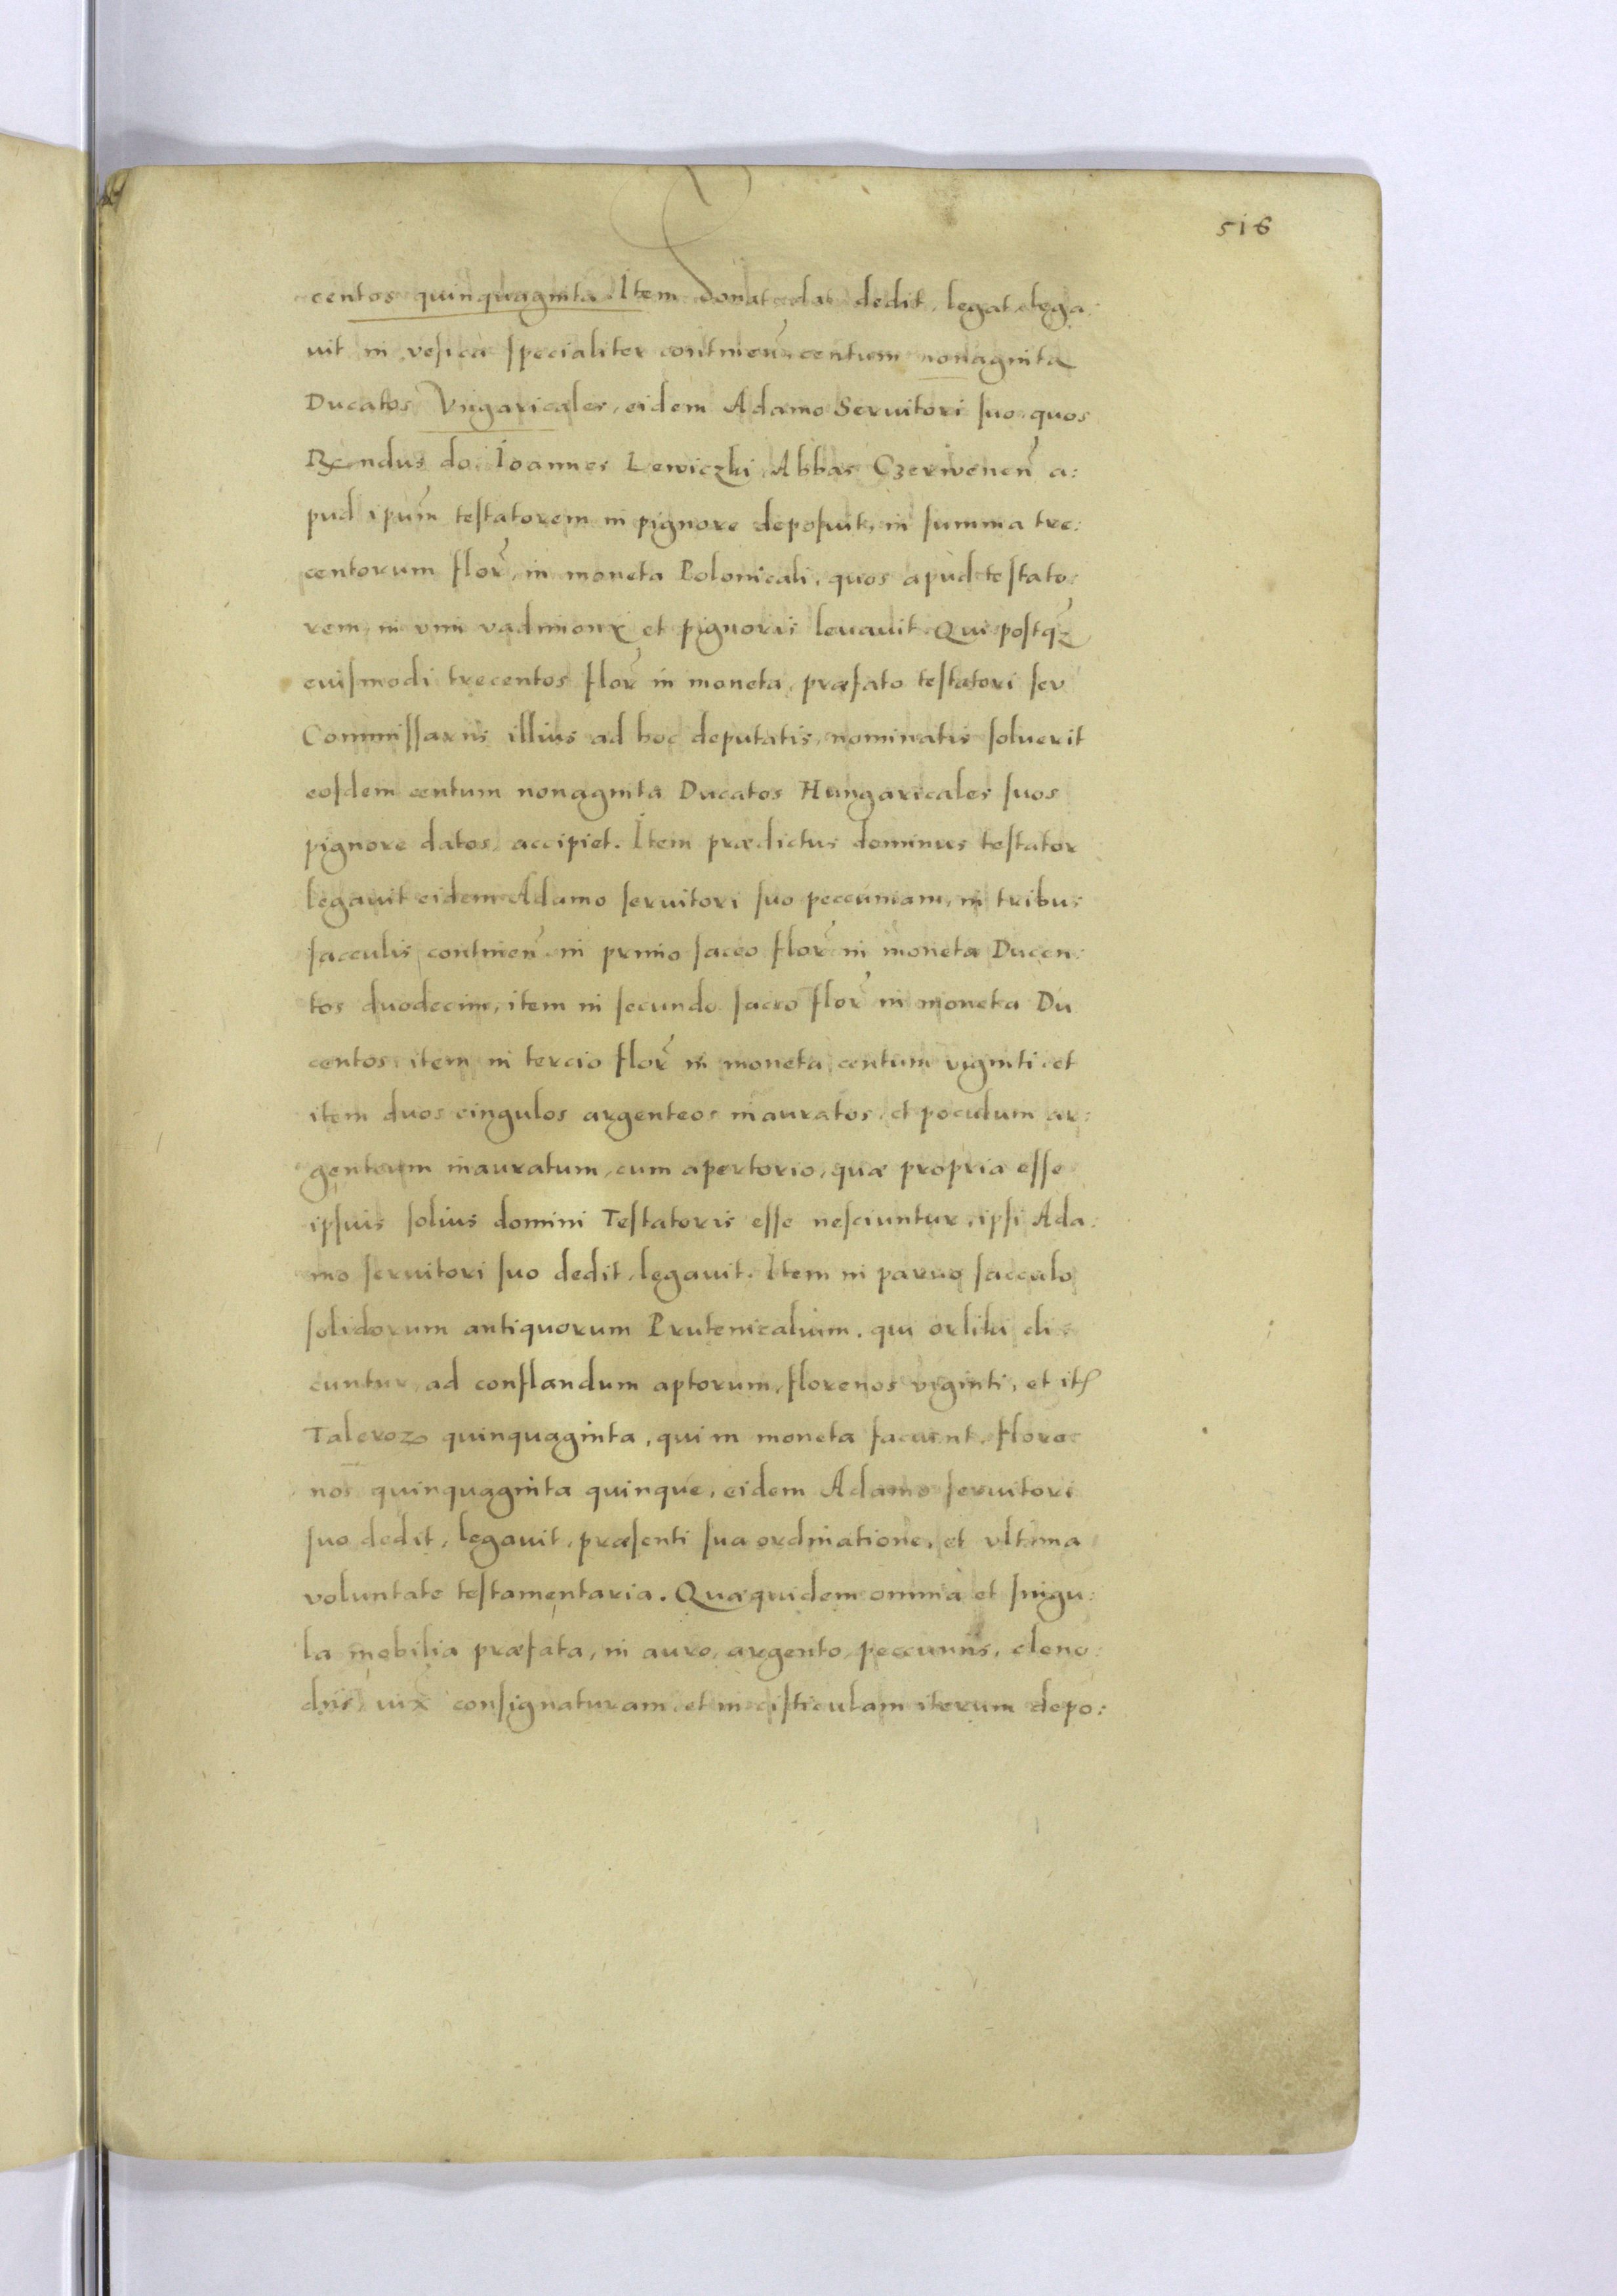 516
centos quinquaginta. Item donat dat dedit, legat lega
uit in vesica specialiter continen̄ centum nonaginta
Ducatos Vngaricales, eidem Adamo Seruitori suo, quos
Rendus do. Ioannes Lewiczki Abbas Czerwenen̄ a:
pud ipum̄ testatorem in pignore deposuit, in summa tre:
centorum flor̄, in moneta Polonicali, quos apud testato:
rem, in vim vadimony et pignoris leuauit. Qui postqȝ
euismodi trecentos flor̄ in moneta, præfato testatori seu
Commissarijs illius ad hoc deputatis, nominatis soluerit
eosdem centum nonaginta Ducatos Hungaricales suos
pignore datos, accipiet. Item prædictus dominus testator
legauit eidem Adamo seruitori suo peccuniam, in tribus
sacculis continen̄ in primo sacco flor̄ in moneta Ducen:
tos duodecim, item in secundo sacco flor̄ in moneta Du
centos, item in tercio flor̄ in moneta centum viginti. et
item duos cingulos argenteos inauratos, et poculum ar:
genteum inauratum, cum apertorio, quæ propria esse
ipsius solius domini Testatoris esse nesciuntur, ipsi Ada:
mo seruitori suo dedit, legauit. Item in paruo sacculo
solidorum antiquorum Prutenicalium, qui orliki di:
cuntur, ad conflandum aptorum, florenos viginti, et
Taleroꝝ quinquaginta, qui in moneta faciunt, flore
nos quinquaginta quinque, eidem Adamo seruitori
suo dedit, legauit, præsenti sua ordinatione, et vltima
voluntate testamentaria. Quæquidem omnia et singu:
la mobilia præfata, in auro, argento, peccunijs, cleno:
dijs, consignaturam et in cisticulam iterum depo: